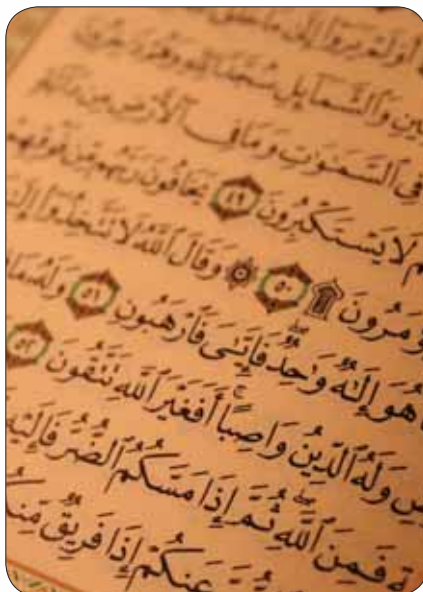 أَوَلَمْ يَرَوْا۟ إِلَىٰ مَا خَلَقَ
وَٱلشَّمَآئِلِ سُجَّدًا لِّلَّهِ وَهُمْ دَٰخِرُونَ
فِى ٱلسَّمَٰوَٰتِ وَمَا فِى ٱلْأَرْضِ مِن دَآبَّةٍ
لَا يَسْتَكْبِرُونَ ٤٩ يَخَافُونَ رَبَّهُم مِّن فَوْقِهِمْ
يُؤْمَرُونَ ۩ ٥٠ ۞ وَقَالَ ٱللَّهُ لَا تَتَّخِذُوٓا۟
هُوَ إِلَٰهٌ وَٰحِدٌ فَإِيَّٰىَ فَٱرْهَبُونِ ٥١ وَلَهُۥ مَا
وَلَهُ ٱلدِّينُ وَاصِبًا أَفَغَيْرَ ٱللَّهِ تَتَّقُونَ ٥٢
فَمِنَ ٱللَّهِ ثُمَّ إِذَا مَسَّكُمُ ٱلضُّرُّ فَإِلَيْهِ
عَنكُمْ إِذَا فَرِيقٌ مِّنكُم